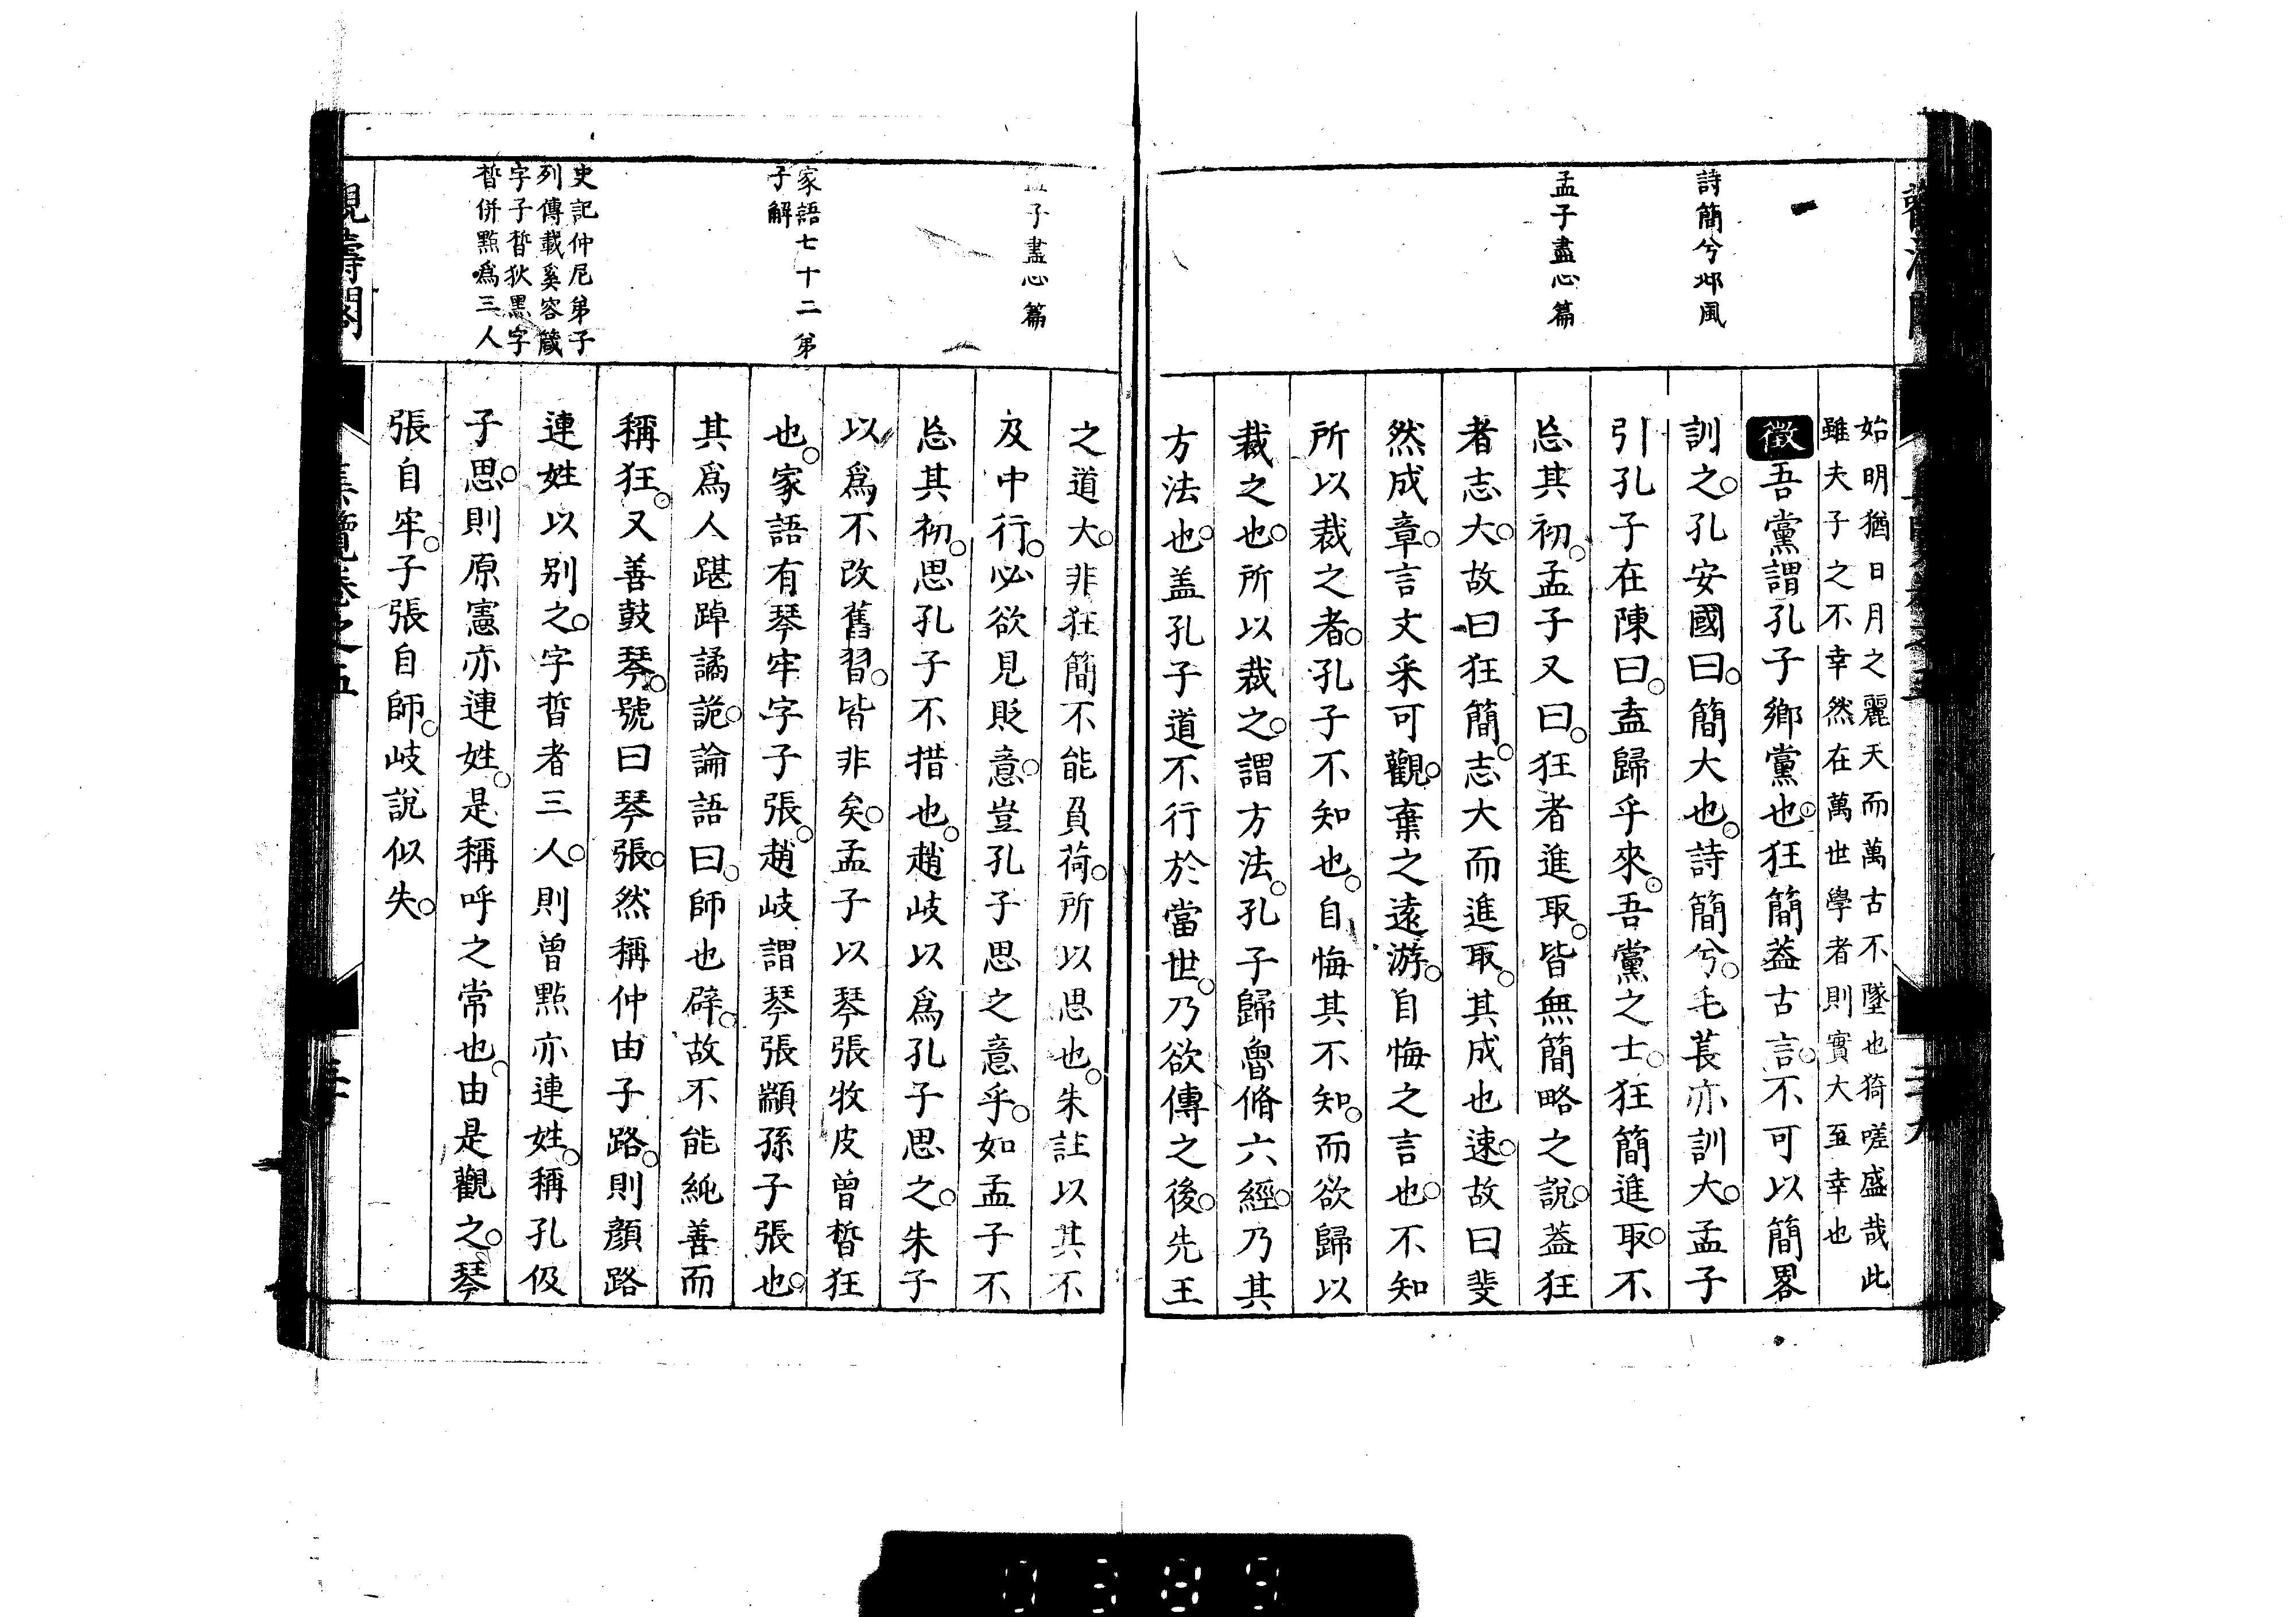 詩簡兮邶風
孟子盡心篇
始明猶日月之麗天而萬古不墜也猗嗟盛哉此
雖夫子之不幸然在萬世學者則實大至幸也
徵吾黨謂孔子鄉黨也。狂簡蓋古言。不可以簡畧
訓之。孔安國曰。簡大也。詩簡兮。毛萇亦訓大。孟子
引孔子在陳曰。盍歸乎來。吾黨之士。狂簡進取。不
忘其初。孟子又曰。狂者進取。皆無簡略之說。蓋狂
者志大。故曰狂簡。志大而進取。其成也速。故曰斐
然成章。言文采可觀。棄之遠游。自悔之言也。不知
所以裁之者。孔子不知也。自悔其不知。而欲歸以
裁之也。所以裁之。謂方法。孔子歸魯脩六經。乃其
方法也。盖孔子道不行於當世。乃欲傳之後。先王
子盡心篇
家語七十二弟
子解
史記仲尼弟子
列傳載奚容箴
字子晳狄黑字
晳併點爲三人
之道大。非狂簡不能負荷。所以思也。朱註以其不
及中行。必欲見貶意。豈孔子思之意乎。如孟子不
忘其初。思孔子不措也。趙岐以爲孔子思之。朱子
以爲不改舊習。皆非矣。孟子以琴張牧皮曾晳狂
也。家語有琴牢字子張。趙岐謂琴張顓孫子張也。
其爲人踸踔譎詭。論語曰。師也辟。故不能純善而
稱狂。又善鼓琴。號曰琴張。然稱仲由子路。則顏路
連姓以別之。字晳者三人。則曾點亦連姓。稱孔伋
子思。則原憲亦連姓。是稱呼之常也。由是觀之。琴
張自牢。子張自師。岐說似失。
集覽卷之五
0389